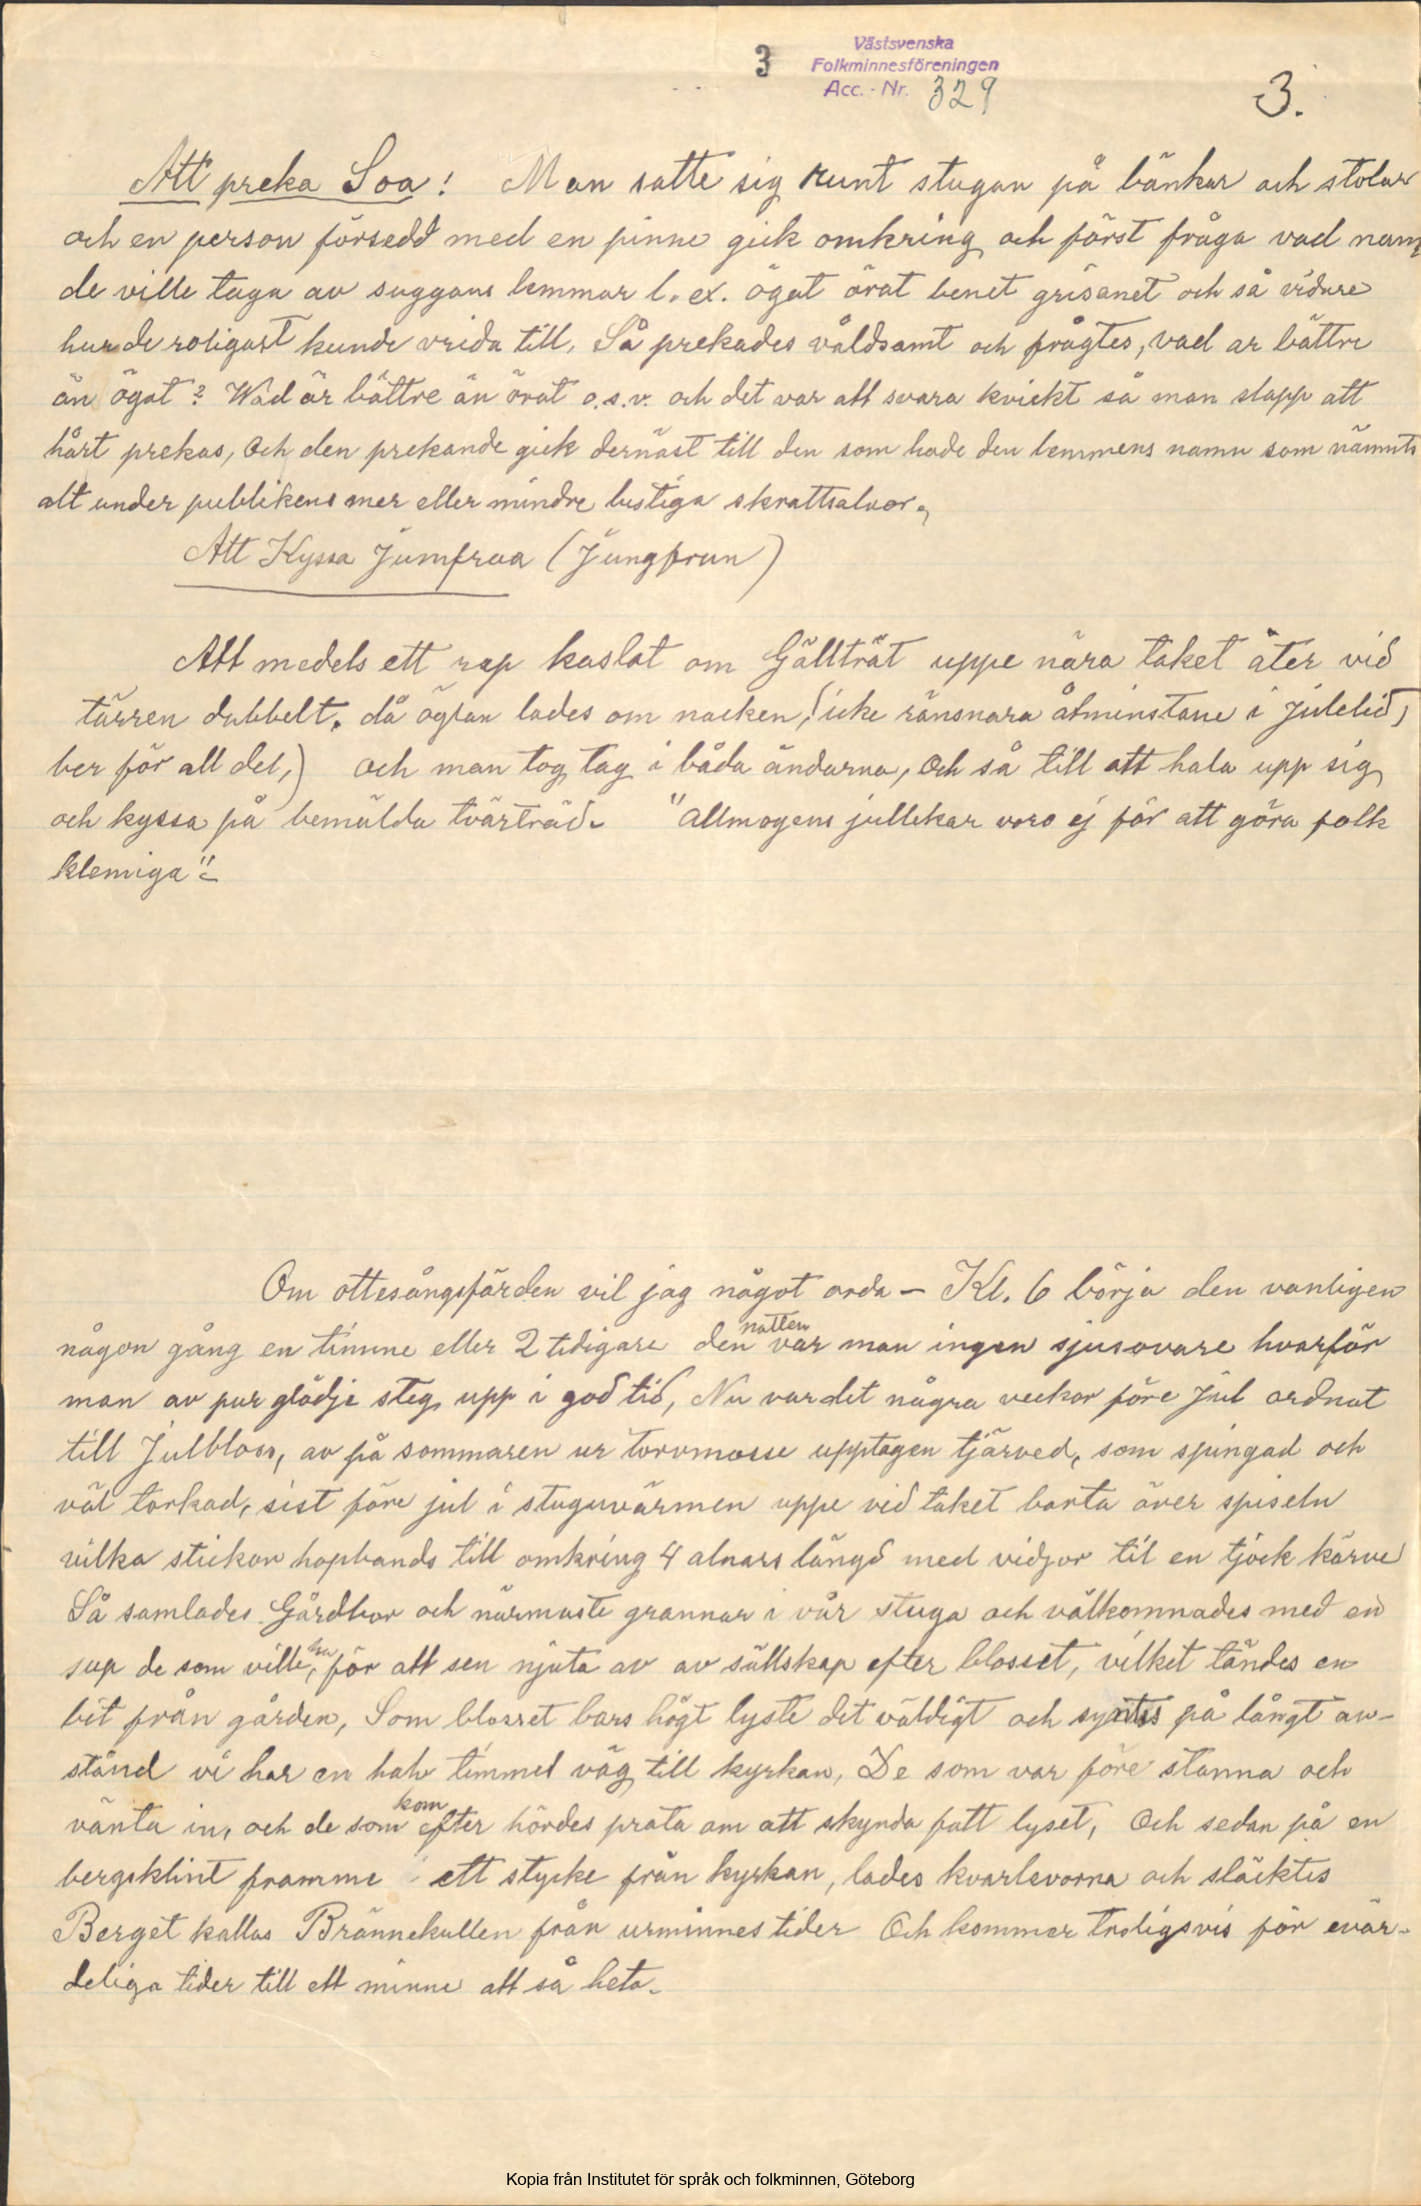 3
Västsvenska
Folkminnesföreningen
Acc. - Nr. 329
3.
Att preka Soa! Man satte sig runt stugan på bänkar och stolar
och en person försedd med en pinne gick omkring och först fråga vad namn
de ville taga av suggans lemmar t. ex. ögat örat benet grisanet och så vidare
hur de roligast kunde vrida till. Så prekades våldsamt och frågtes, vad ar bättre
än ögat? Wad är bättre än örat o.s.v. och det var att svara kvickt så man slapp att
hårt prekas, Och den prekande gick dernäst till den som hade den lemmens namn som nämnts
alt under publikens mer eller mindre lustiga skrattsalvor.
Att Kyssa Jumfrua (Jungfrun)
Att medels ett rep kastat om Gällträt uppe nära taket åter vid
tårren dubbelt. då öglan lades om nacken, (icke ränsnara åtminstone i juletid,
ber för all del,) och man tog tag i båda ändarna, Och så till att hala upp sig
och kyssa på bemälda tvärträd. "Allmogens jullekar voro ej för att göra folk
klemiga".
Om ottesångsfärden vil jag något orda - Kl. 6 börja den vanligen
någon gång en timme eller 2 tidigare den natten var man ingen sjusovare hvarför
man av pur glädje steg upp i god tid, Nu var det några veckor före Jul ordnat
till Julbloss, av på sommaren ur torvmosse upptagen tjärved, som spingad och
väl torkad, sist före jul i stuguvärmen uppe vid taket borta över spiseln
vilka stickor hopbands till omkring 4 alnars längd med vidjor til en tjock kärve
Så samlades Gårdbor och närmaste grannar i vår stuga och välkomnades med en
sup de som ville ha, för att sen njuta av av sällskap efter blosset, vilket tändes en
bit från gården, Som blosset bars högt lyste det väldigt och syntes på långt av-
stånd vi har en halv timmes väg till kyrkan, De som var före stanna och
vänta in, och de som kom efter hördes prata om att skynda fatt lyset, Och sedan på en
bergsklint framme ett stycke från kyrkan, lades kvarlevorna och släcktes
Berget kallas Brännekullen från urminnes tider Och kommer troligsvis för evär-
deliga tider till ett minne att så heta.
Kopia från Institutet för språk och folkminnen, Göteborg